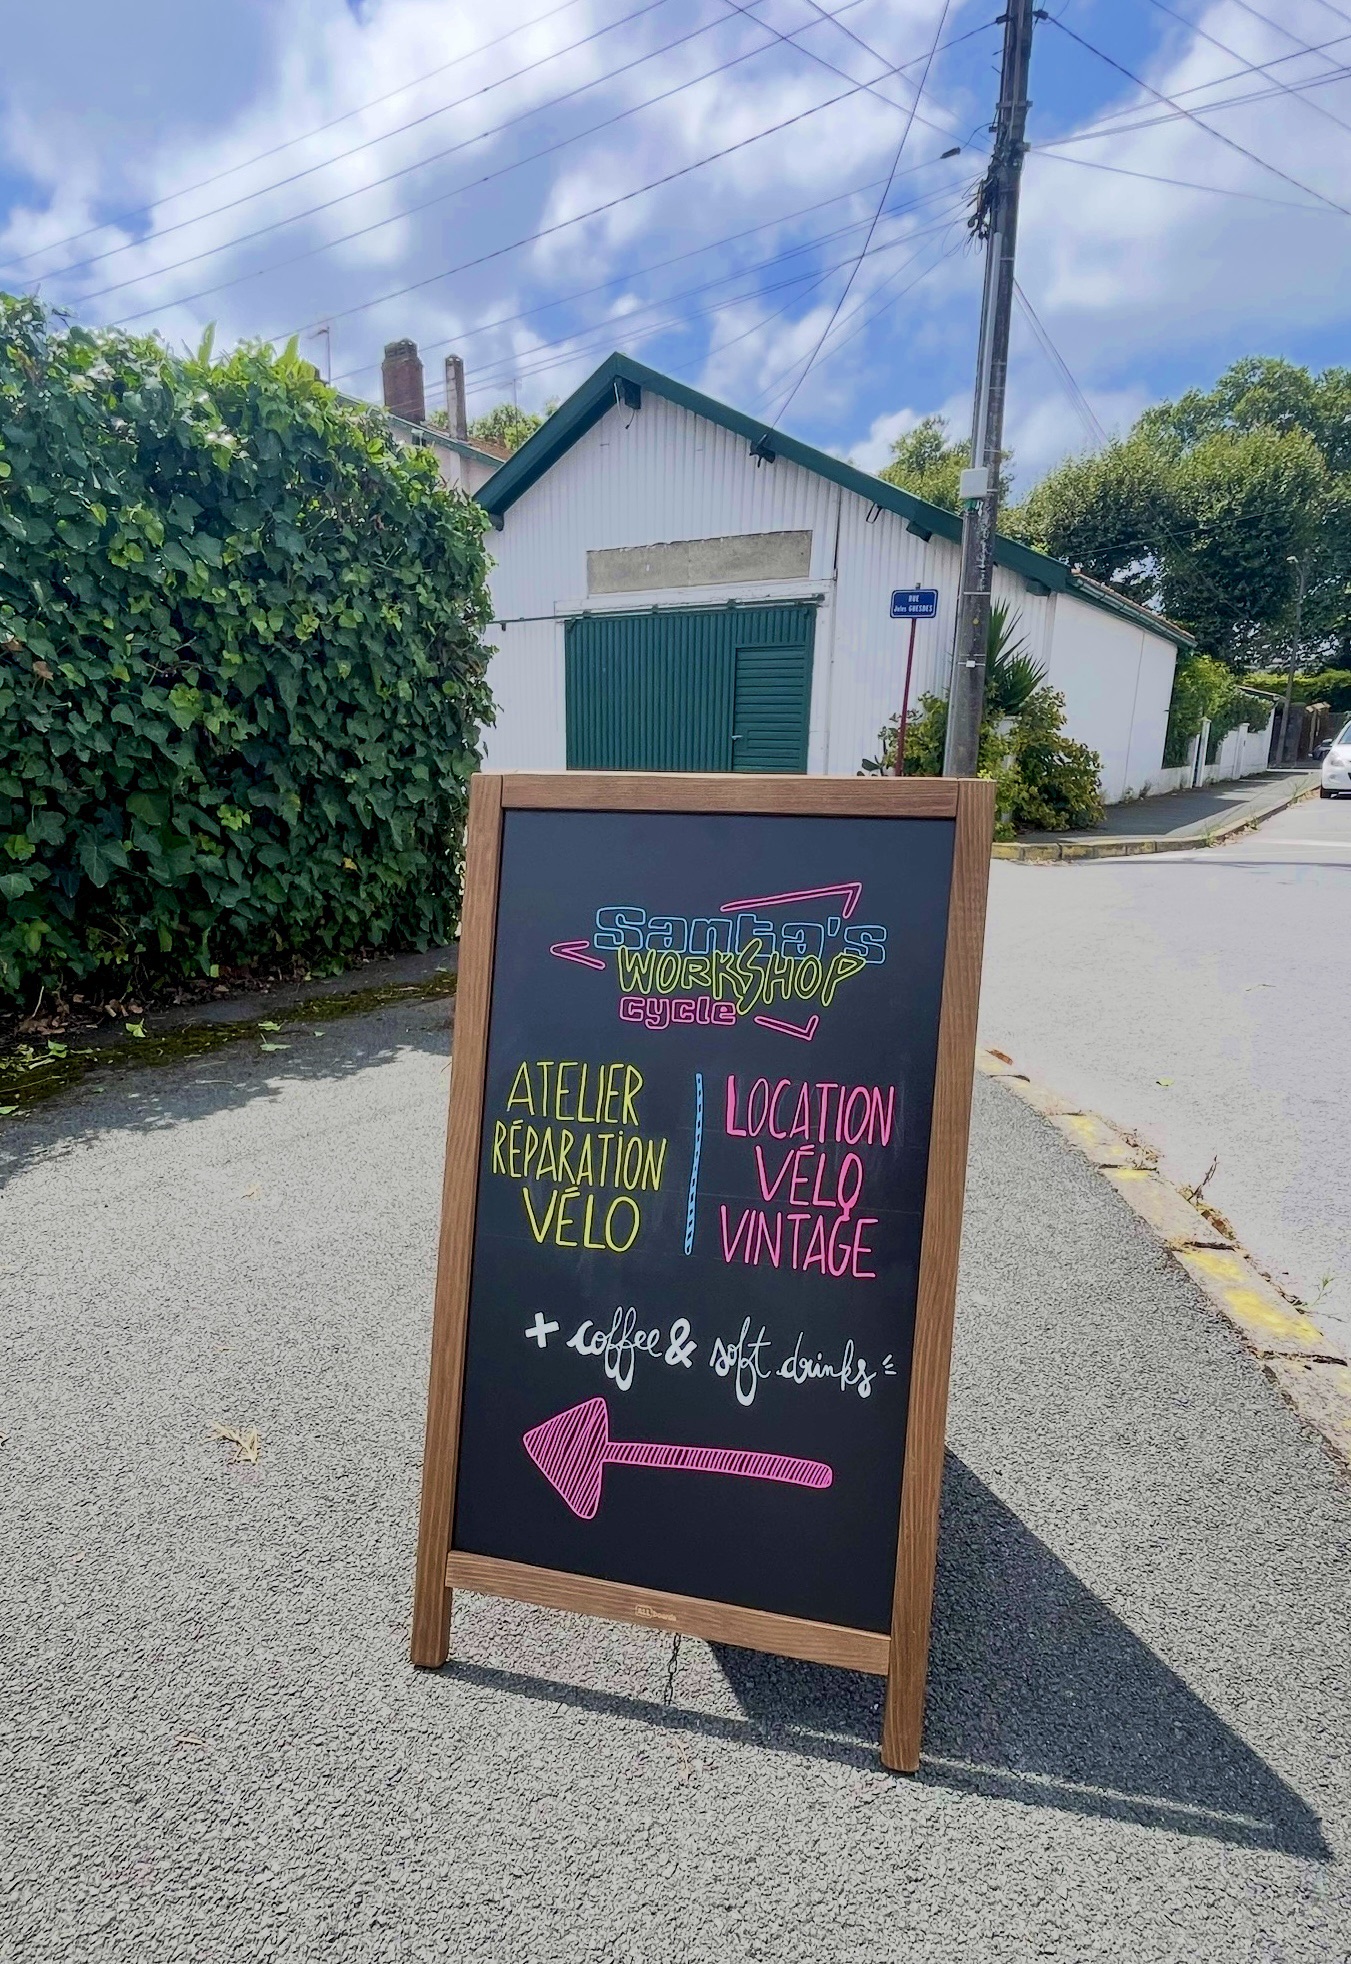 RUE
Jules GUESDES
Santa's
WORKSHOP
cycle
ATELIER
RÉPARATION
VÉLO
LOCATION
VÉLO
VINTAGE
+ coffee & soft drinks
ALLboards